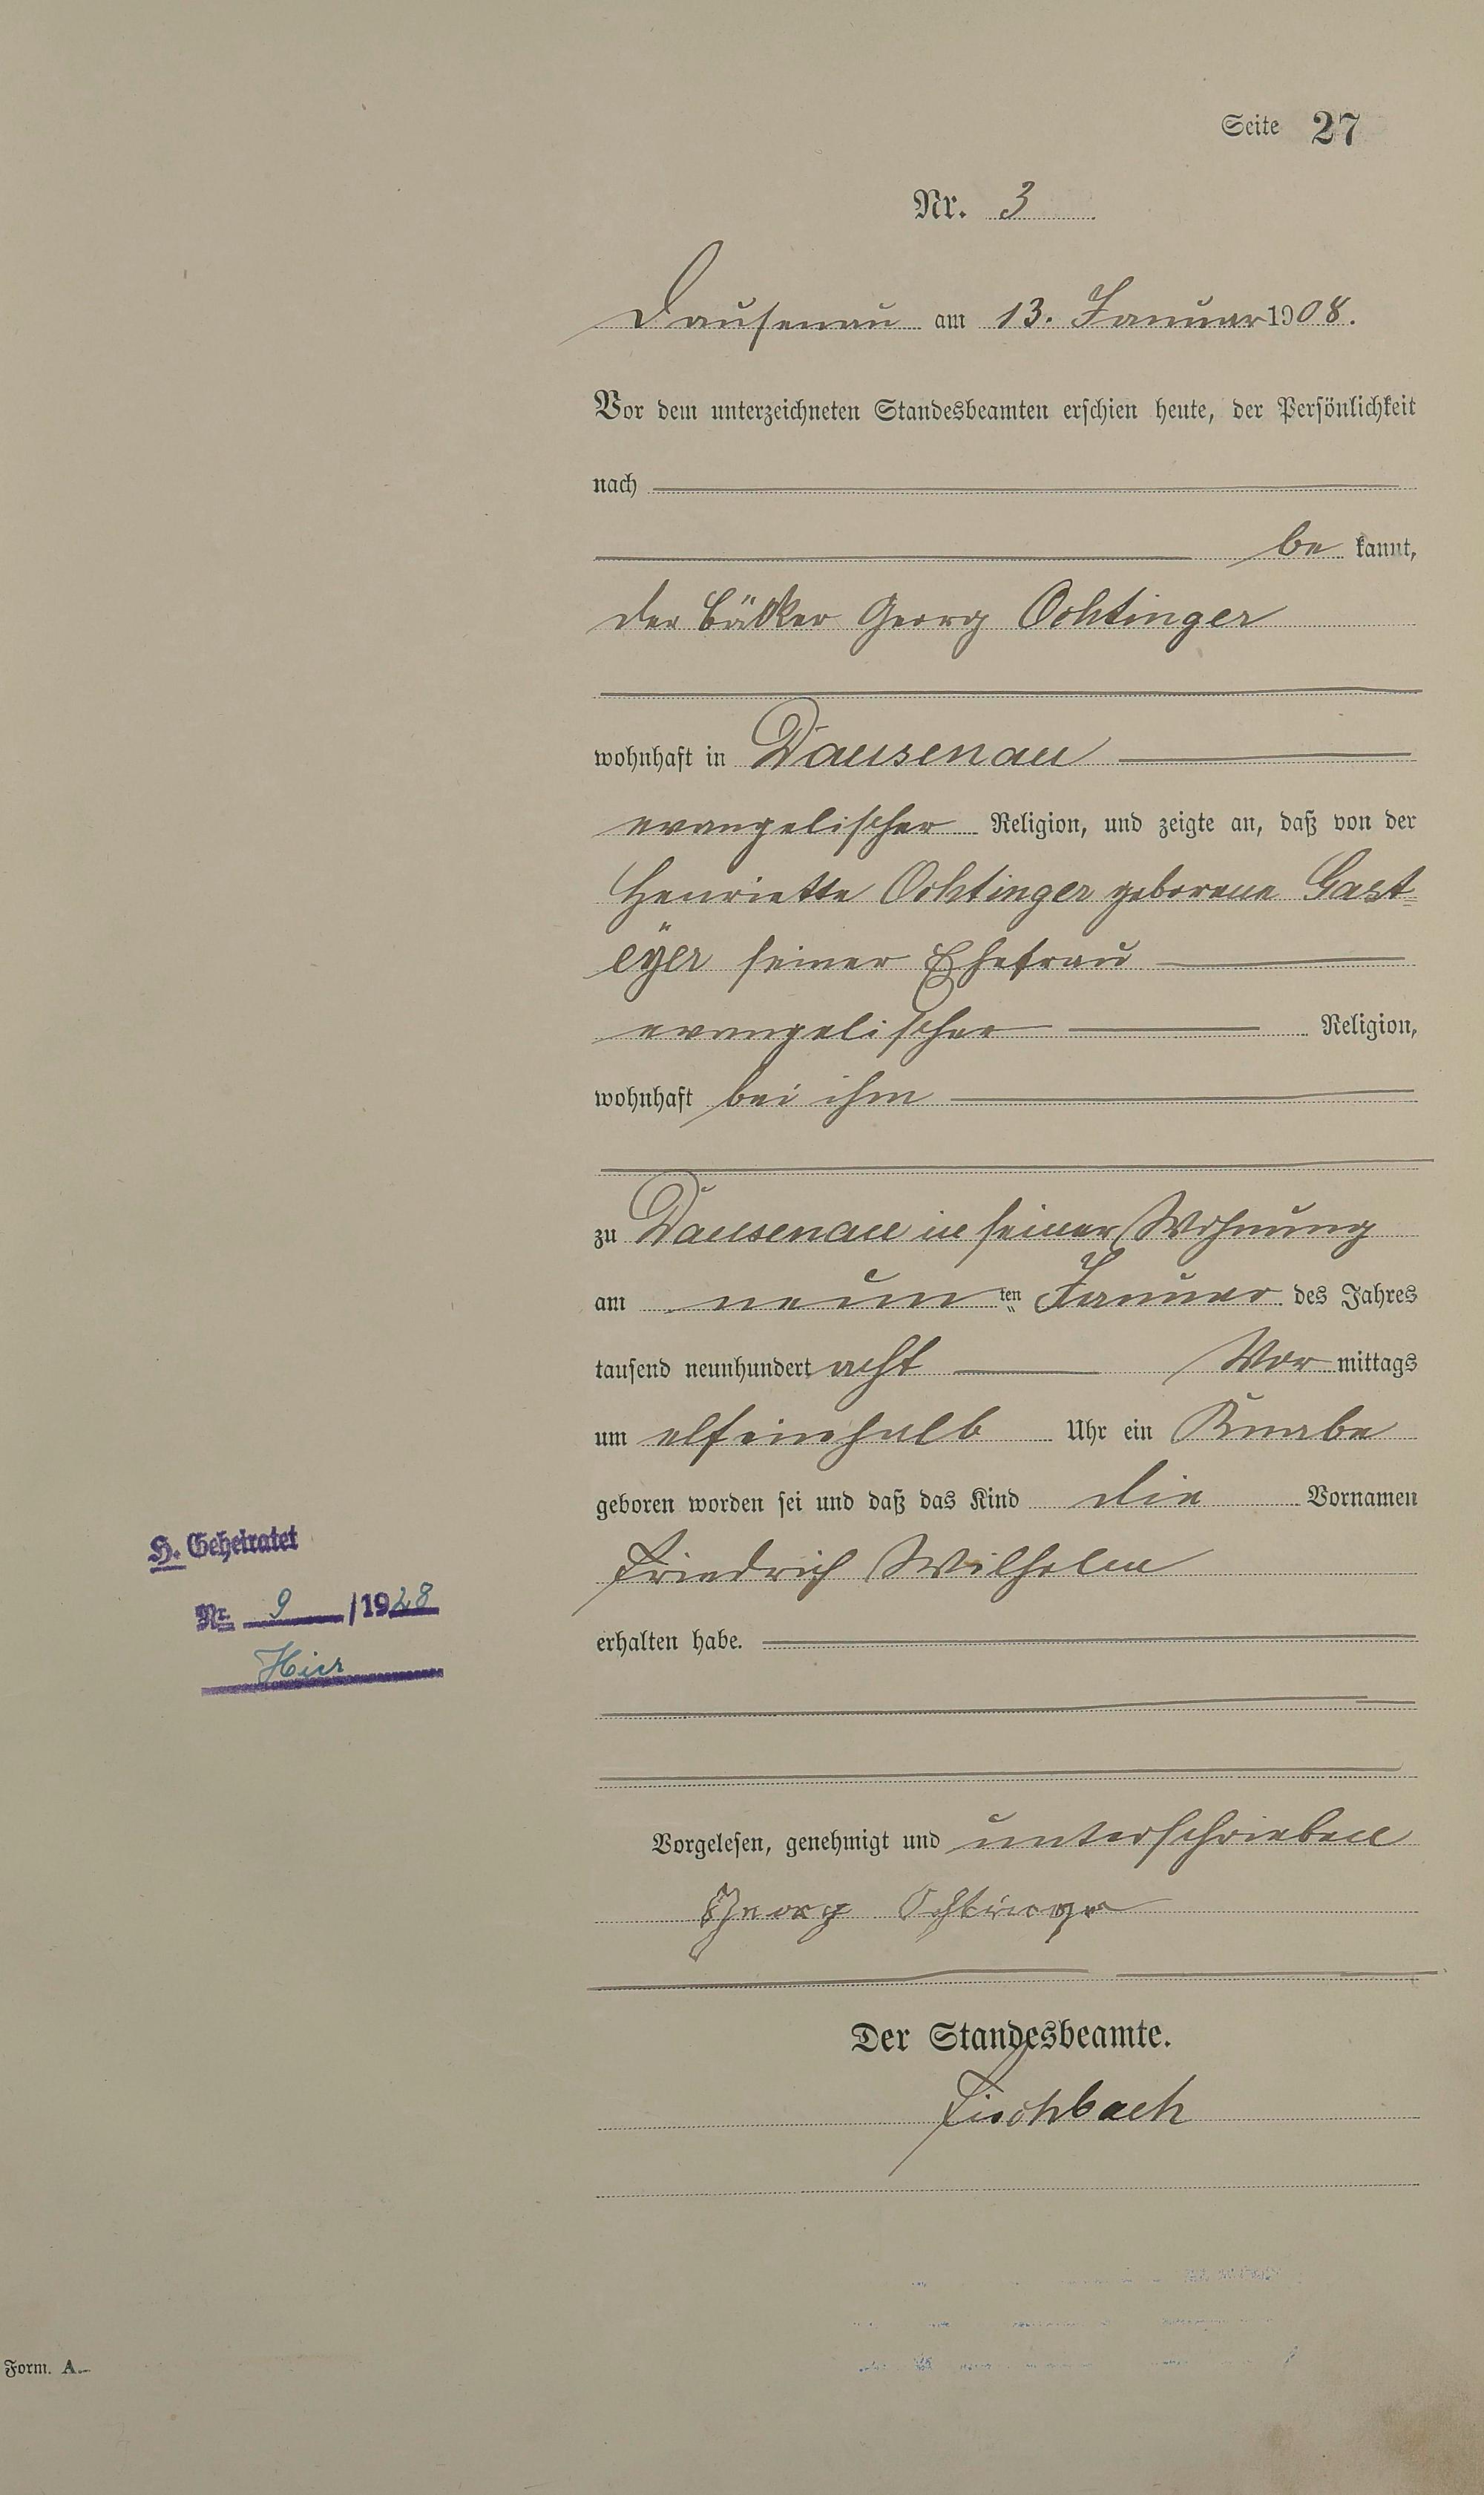 Seite 27
Nr. 3
Dausenau am 13. Januar 1908.
Vor dem unterzeichneten Standesbeamten erschien heute, der Persönlichkeit
nach
be kannt,
der Bäcker Georg Ochtinger
wohnhaft in Dausenau
evangelischer Religion, und zeigte an, daß von der
Henriette Ochtinger geborene Gast-
eÿer seiner Ehefrau
evangelischer Religion,
wohnhaft bei ihm
zu Dausenau in seiner Wohnung
am neun ten Januar des Jahres
tausend neunhundert acht Vor mittags
um elfeinhalb Uhr ein Knabe
geboren worden sei und daß das Kind die Vornamen
Friedrich Wilhelm
erhalten habe.
H. Geheiratet
Nr. 9 /1928
Hier
Vorgelesen, genehmigt und unterschrieben
Georg Ochtinger
Der Standesbeamte.
Fischbach
Form. A.